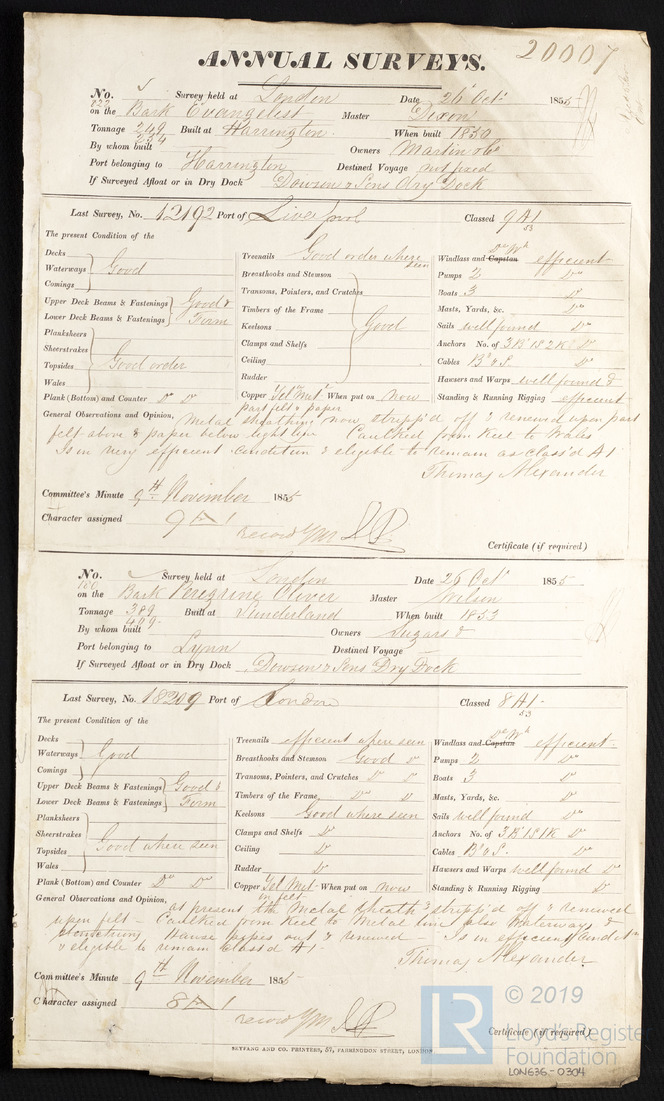 ANNUAL SURVEYS. 20007
No. Survey held at London Date 26 Oct 1855
on the Bark Evangelist Master Dixon
Tonnage 249 Built at Harrington When built 1850
234
By whom built Owners Martin & Co
Port belonging to Harrington Destined Voyage not fixed
If Surveyed Afloat or in Dry Dock Dowson & Sons Dry Dock
Last Survey, No. 12192 Port of Liverpool Classed 9 A1
53
The present Condition of the
Decks
Waterways Good
Comings
Upper Deck Beams & Fastenings Good &
Lower Deck Beams & Fastenings Firm
Planksheers
Sheerstrakes
Topsides Good order
Wales
Plank (Bottom) and Counter Do Do
Treenails Good order where seen
Breasthooks and Stemson
Transoms, Pointers, and Crutches
Timbers of the Frame
Keelsons Good
Clamps and Shelfs
Ceiling
Rudder
Copper Yel Met When put on now
part felt & paper
Windlass and Capstan efficient
Pumps 2 Do
Boats 3 Do
Masts, Yards, &c. Do
Sails well found Do
Anchors No. of 3 B 1 S 2 K Do
Cables Do
Hawsers and Warps well found &
Standing & Running Rigging efficient
General Observations and Opinion, Metal sheathing now stripp'd off & renewed upon part
felt above & paper below light line Caulked from Keel to Wales
Is in very efficient condition & eligible to remain as class'd A1
Thomas Alexander
Committee's Minute 9th November 1855
Character assigned 9 A 1
record YM
Certificate (if required)
No. Survey held at London Date 26 Oct 1855
on the Bark Peregrine Oliver Master Wilson
Tonnage 389 Built at Sunderland When built 1853
409
By whom built Owners Sugars &
Port belonging to Lynn Destined Voyage
If Surveyed Afloat or in Dry Dock Dowson & Sons Dry Dock
Last Survey, No. 18209 Port of London Classed 8 A1
53
The present Condition of the
Decks
Waterways Good
Comings
Upper Deck Beams & Fastenings Good &
Lower Deck Beams & Fastenings Firm
Planksheers
Sheerstrakes
Topsides Good where seen
Wales
Plank (Bottom) and Counter Do Do
Treenails efficient where seen
Breasthooks and Stemson Good Do
Transoms, Pointers, and Crutches Do Do
Timbers of the Frame Do Do
Keelsons Good where seen
Clamps and Shelfs Do
Ceiling Do
Rudder Do
Copper Yel Met When put on now
in felt
Windlass and Capstan efficient
Pumps 2 Do
Boats 3 Do
Masts, Yards, &c. Do
Sails well found Do
Anchors No. of 3 B 1 S 1 K Do
Cables Do
Hawsers and Warps well found Do
Standing & Running Rigging Do
General Observations and Opinion, at present the Metal sheath'g stripp'd off & renewed
upon felt Caulked from Keel to Metal line also Waterways &
Hawse pipes out & renewed Is in efficient condit'n
& eligible to remain class'd A1
Thomas Alexander
Committee's Minute 9th November 1855
Character assigned 8 A 1
record YM
Certificate (if required)
SEYFANG AND CO. PRINTERS, 57, FARRINGDON STREET, LONDON
LR © 2019
Lloyd's Register
Foundation
LON636-0304